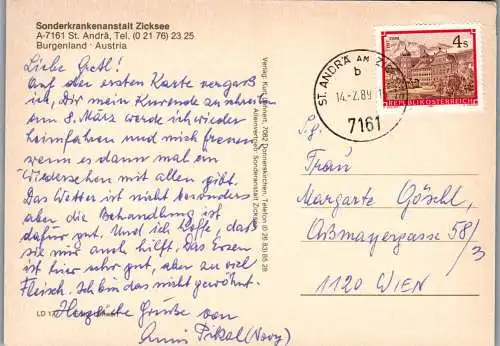 Sonderkrankenanstalt Zicksee
A-7161 St. Andrä, Tel. (0 21 76) 23 25
Burgenland · Austria
Liebe Gretl!
Auf der ersten Karte vergaß
ich, Dir mein Kurende zu schreiben
am 8. März werde ich wieder
heimfahren und mich freuen
wenn es dann mal ein
Wiedersehen mit allen gibt.
Das Wetter ist nicht besonders
aber die Behandlung ist
dafür gut. Und ich hoffe, daß
sie mir auch hilft. Das Essen
ist hier sehr gut, aber zu viel
Fleisch. Ich bin das nicht gewöhnt.
Herzliche Grüße von
Anni Pikal (Novy)
ST. ANDRÄ AM
b
14.-2.89
7161
4s
REPUBLIK ÖSTERREICH
Frau
Margarte Göschl,
Aßmayergasse 58/3
1120 WIEN